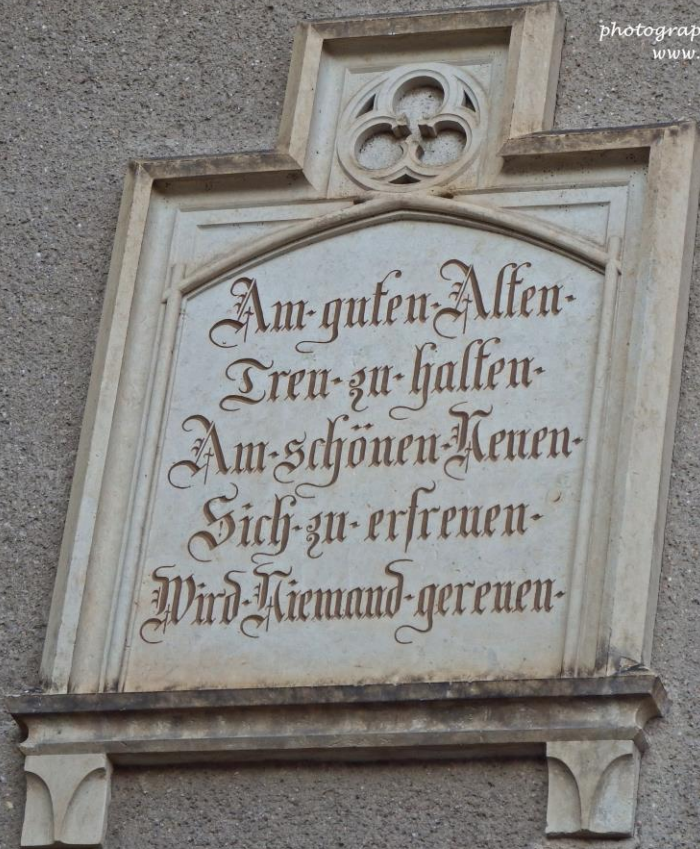 photograp
www.
Am guten Alten
Treu zu halten
Am schönen Neuen
Sich zu erfreuen
Wird Niemand gereuen